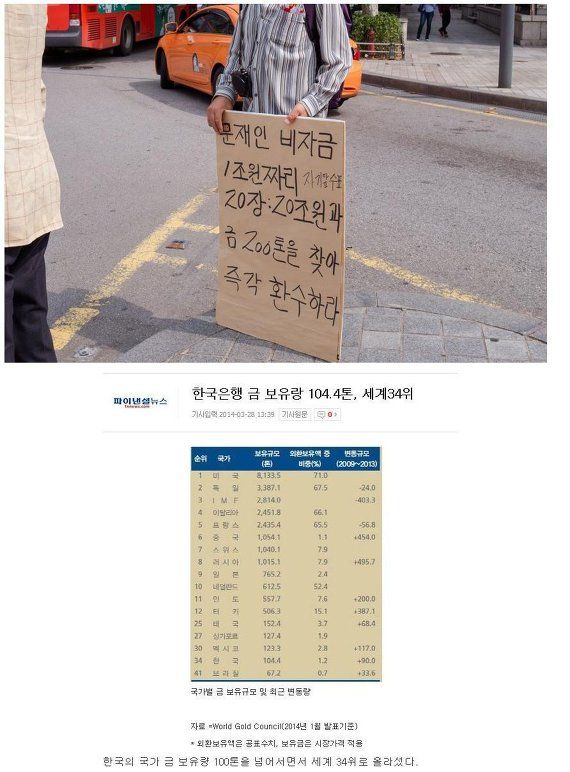 문재인 비자금
1조원짜리 자기앞수표
20장:20조원과
금 200톤을 찾아
즉각 환수하라
파이낸셜뉴스
fnnews.com
한국은행 금 보유량 104.4톤, 세계34위
기사입력 2014-03-28 13:39 기사원문 0
순위 국가 보유규모(톤) 외환보유액 중 비중(%) 변동규모(2009~2013)
1 미 국 8,133.5 71.0
2 독 일 3,387.1 67.5 -24.0
3 I M F 2,814.0 -403.3
4 이탈리아 2,451.8 66.1
5 프 랑 스 2,435.4 65.5 -56.8
6 중 국 1,054.1 1.1 +454.0
7 스 위 스 1,040.1 7.9
8 러 시 아 1,015.1 7.9 +495.7
9 일 본 765.2 2.4
10 네덜란드 612.5 52.4
11 인 도 557.7 7.6 +200.0
12 터 키 506.3 15.1 +387.1
25 태 국 152.4 3.7 +68.4
27 싱가포르 127.4 1.9
30 멕 시 코 123.3 2.8 +117.0
34 한 국 104.4 1.2 +90.0
41 브 라 질 67.2 0.7 +33.6
국가별 금 보유규모 및 최근 변동량
자료 =World Gold Council(2014년 1월 발표기준)
* 외환보유액은 공표수치, 보유금은 시장가격 적용
한국의 국가 금 보유량 100톤을 넘어서면서 세계 34위로 올라섰다.